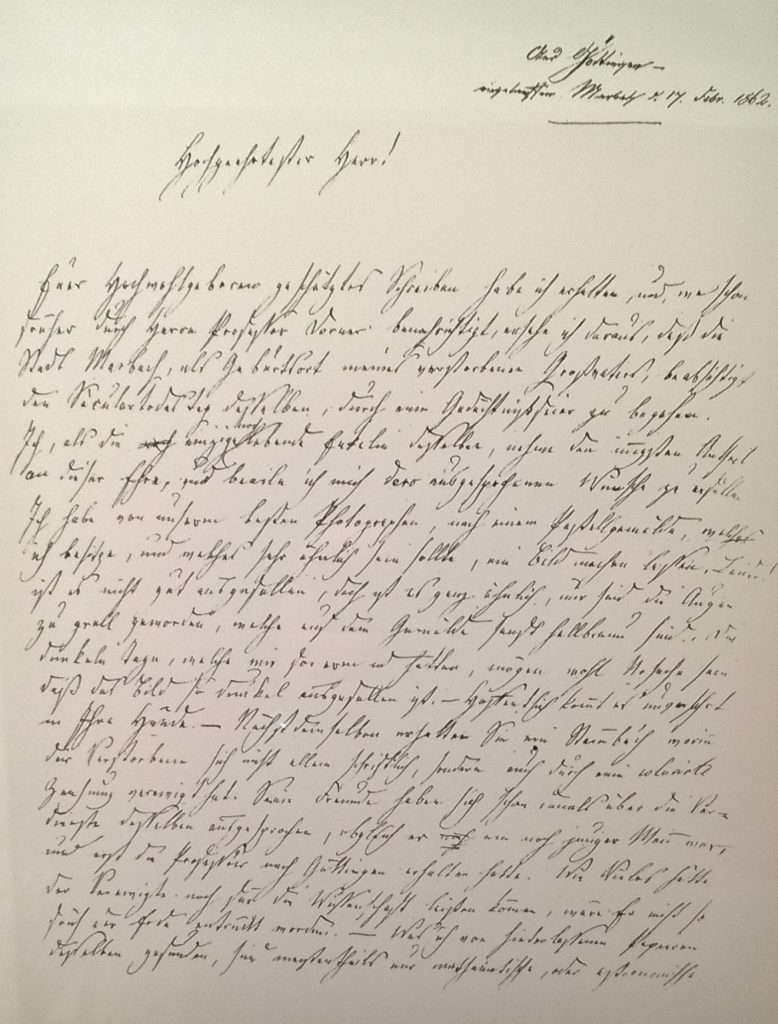 Aus Göttingen –
eingetroffen Marbach d. 17. Febr. 1862.
Hochgeehrtester Herr!
Euer Hochwohlgeboren geschätztes Schreiben habe ich erhalten, und, wie schon
früher durch Herrn Professor Dorner benachrichtigt, ersehe ich daraus, daß die
Stadt Marbach, als Geburtsort meines verstorbenen Großvaters, beabsichtigt
den Seculartodestag desselben, durch eine Gedächtnißfeier zu begehen.
Ich, als die einzige noch lebende Enkelin desselben, nehme den innigsten Antheil
an dieser Ehre, und beeile ich mich dero ausgesprochenen Wunsche zu erfüllen
Ich habe von unserem besten Photographen, nach einem Pastellgemälde, welches
ich besitze, und welches sehr ähnlich sein sollte, ein Bild machen lassen. Leider!
ist es nicht gut ausgefallen, doch ist es ganz ähnlich, nur sind die Augen
zu grell geworden, welche auf dem Gemälde sanft hellbraun sind. Die
dunkeln Tage, welche wir hatten, mögen wohl Ursache sein
daß das Bild so dunkel ausgefallen ist. – Hoffentlich kommt es unversehrt
in Ihre Hände. – Nächst demselben erhalten Sie ein Stammbuch worin
der Verstorbene sich nicht allein schriftlich, sondern auch durch eine colorirte
Zeichnung verewigt hat. Seine Freunde haben sich schon damals über die Ver=
dienste desselben ausgesprochen, obgleich er ein noch junger Mann war,
und erst die Professur nach Göttingen erhalten hatte. Wie Vieles hätte
der Verewigte noch für die Wissenschaft leisten können, wäre Er nicht so
früh der Erde entrückt worden. – Was ich von hinterlassenen Papieren
desselben gefunden, sind meistentheils nur mathematische, oder astronomische